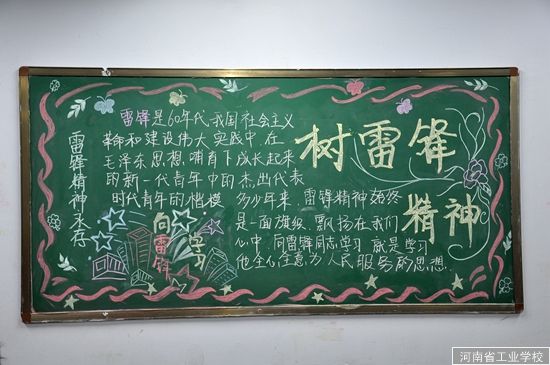 树雷锋
精神
雷锋精神永存
雷锋是60年代我国社会主义
革命和建设伟大实践中,在
毛泽东思想哺育下成长起来
的新一代青年中的杰出代表
时代青年的楷模
多少年来,雷锋精神始终
是一面旗帜,飘扬在我们
心中,向雷锋同志学习,就是学习
他全心全意为人民服务的思想.
向雷锋学习
河南省工业学校